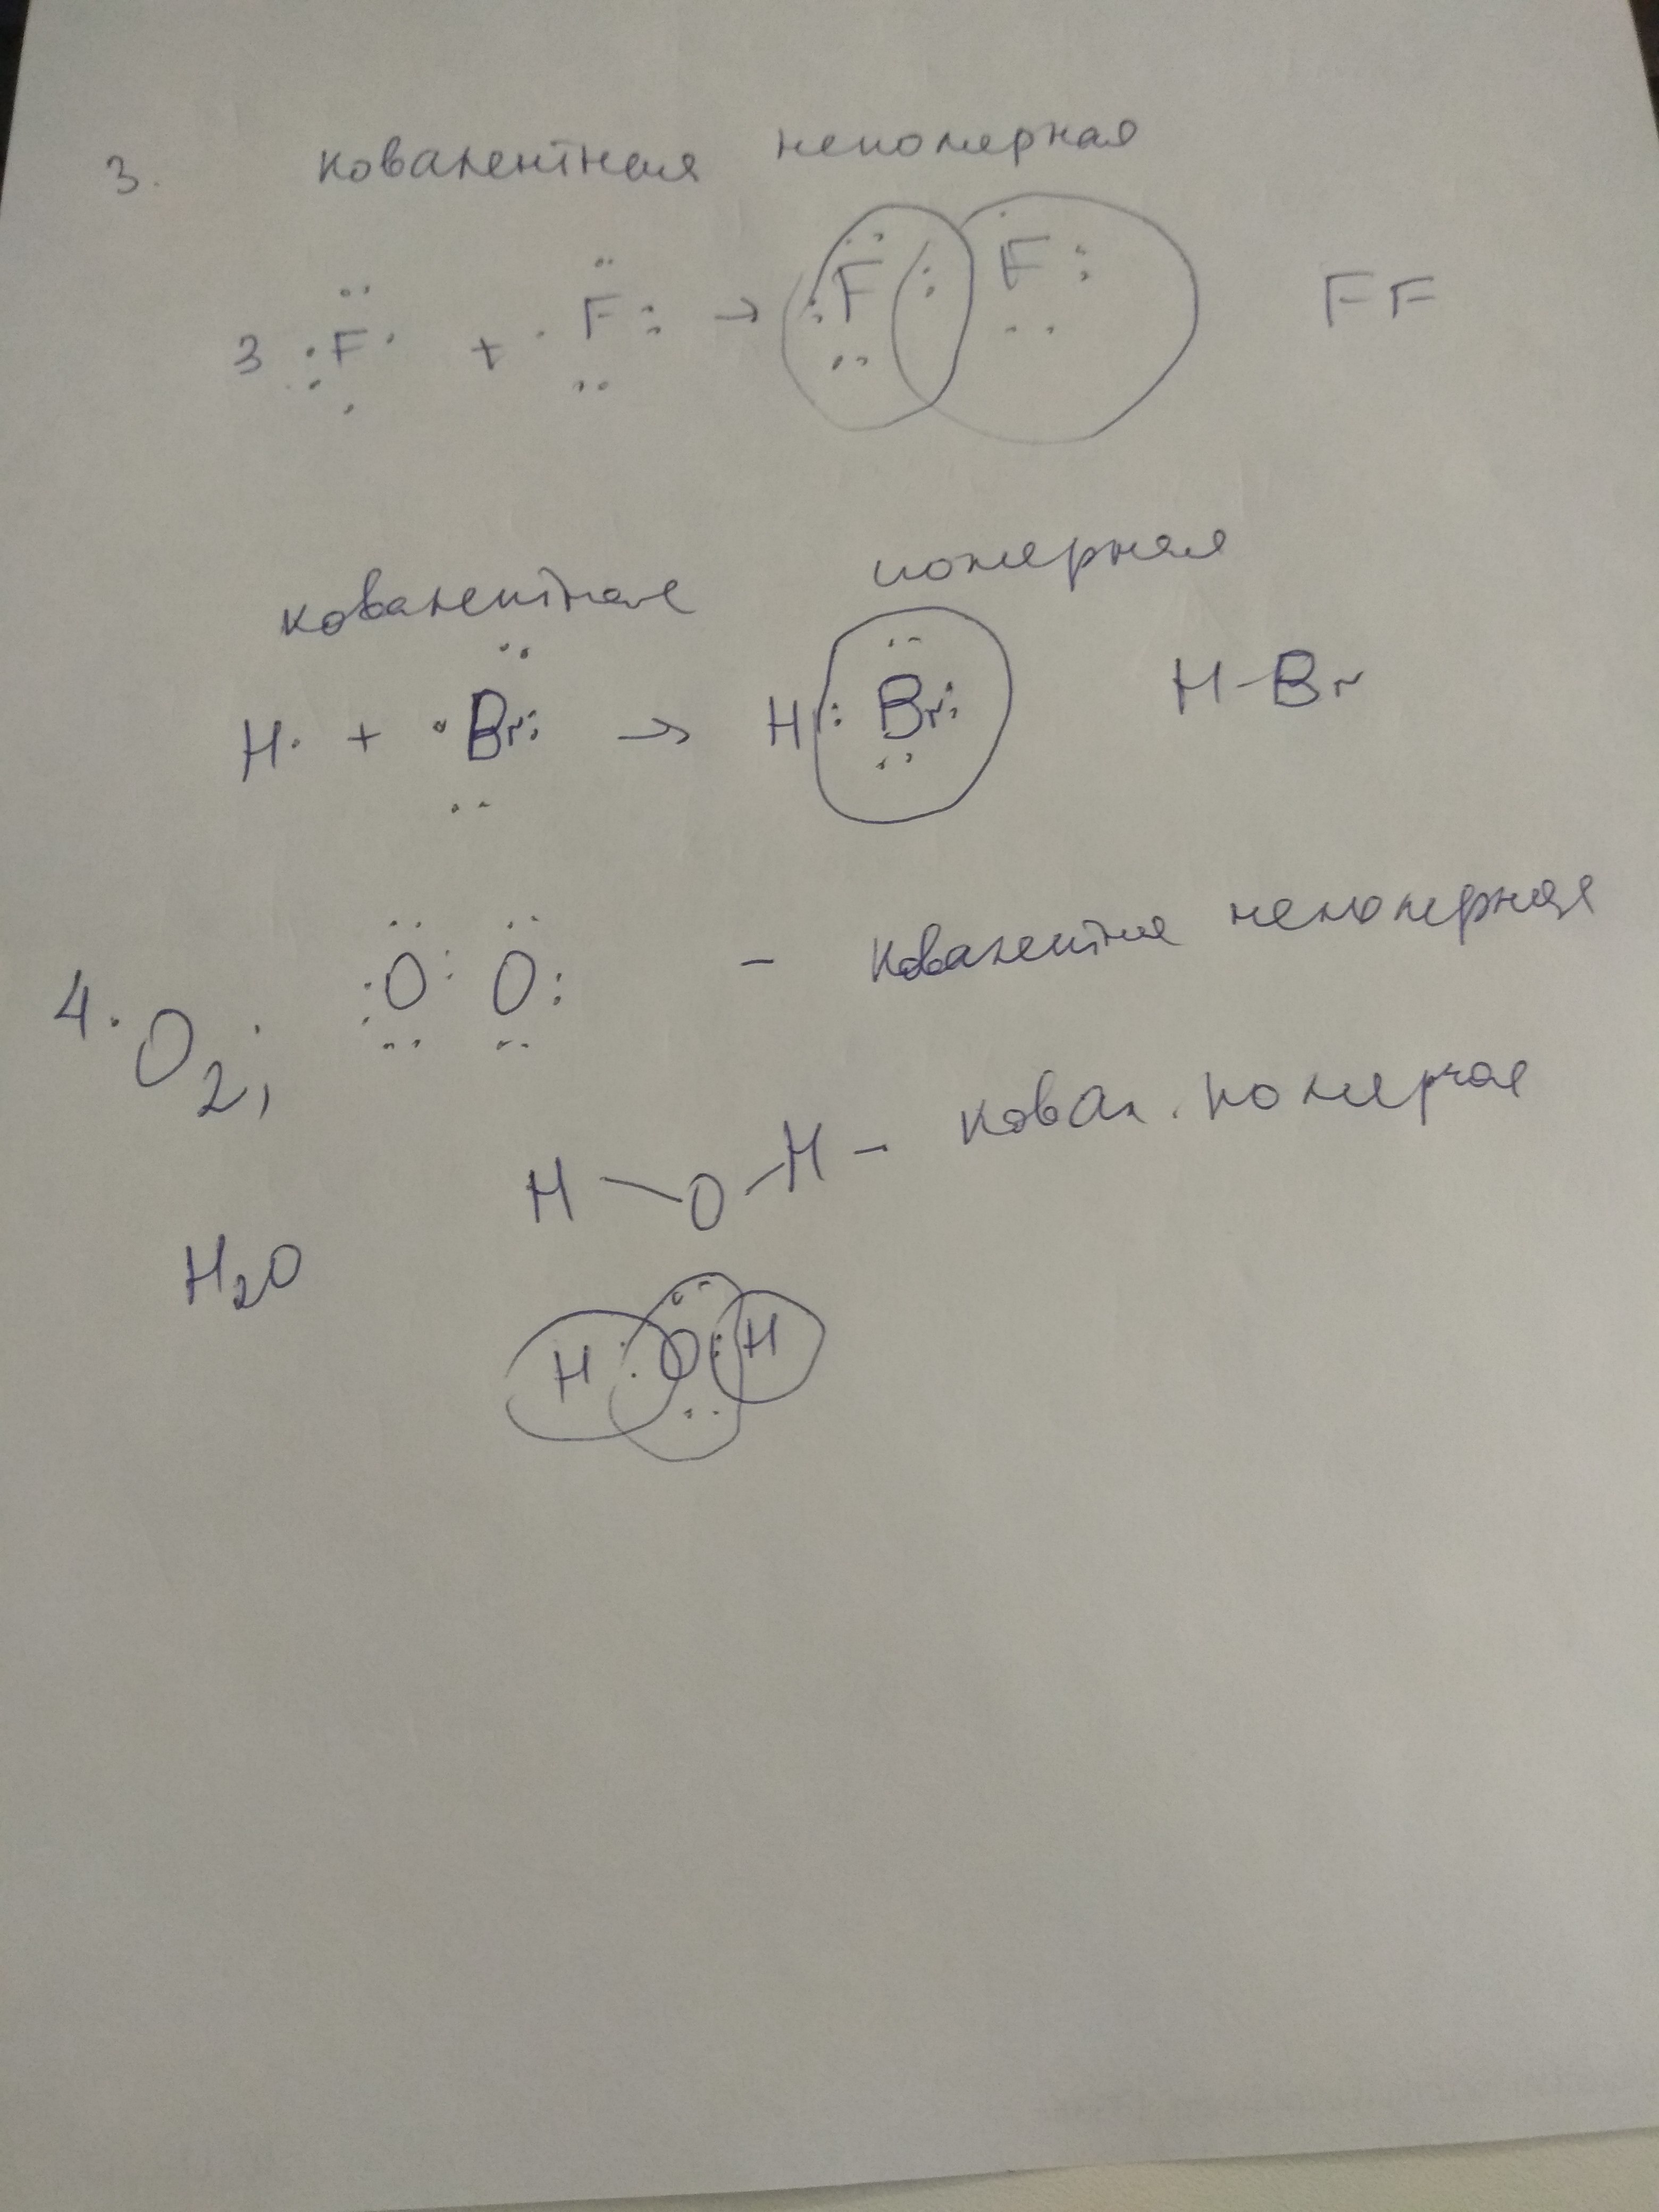 3. ковалентная неполярная
3 :F· + ·F: → :F:F: F F
ковалентная полярная
H· + ·Br: → H:Br: H-Br
4. O₂; :O:O: - ковалентная неполярная
H-O-H - ковал. полярная
H₂O
H:O:H